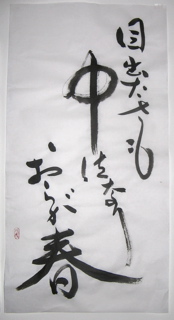 目出たさも
中位なり
おらが春